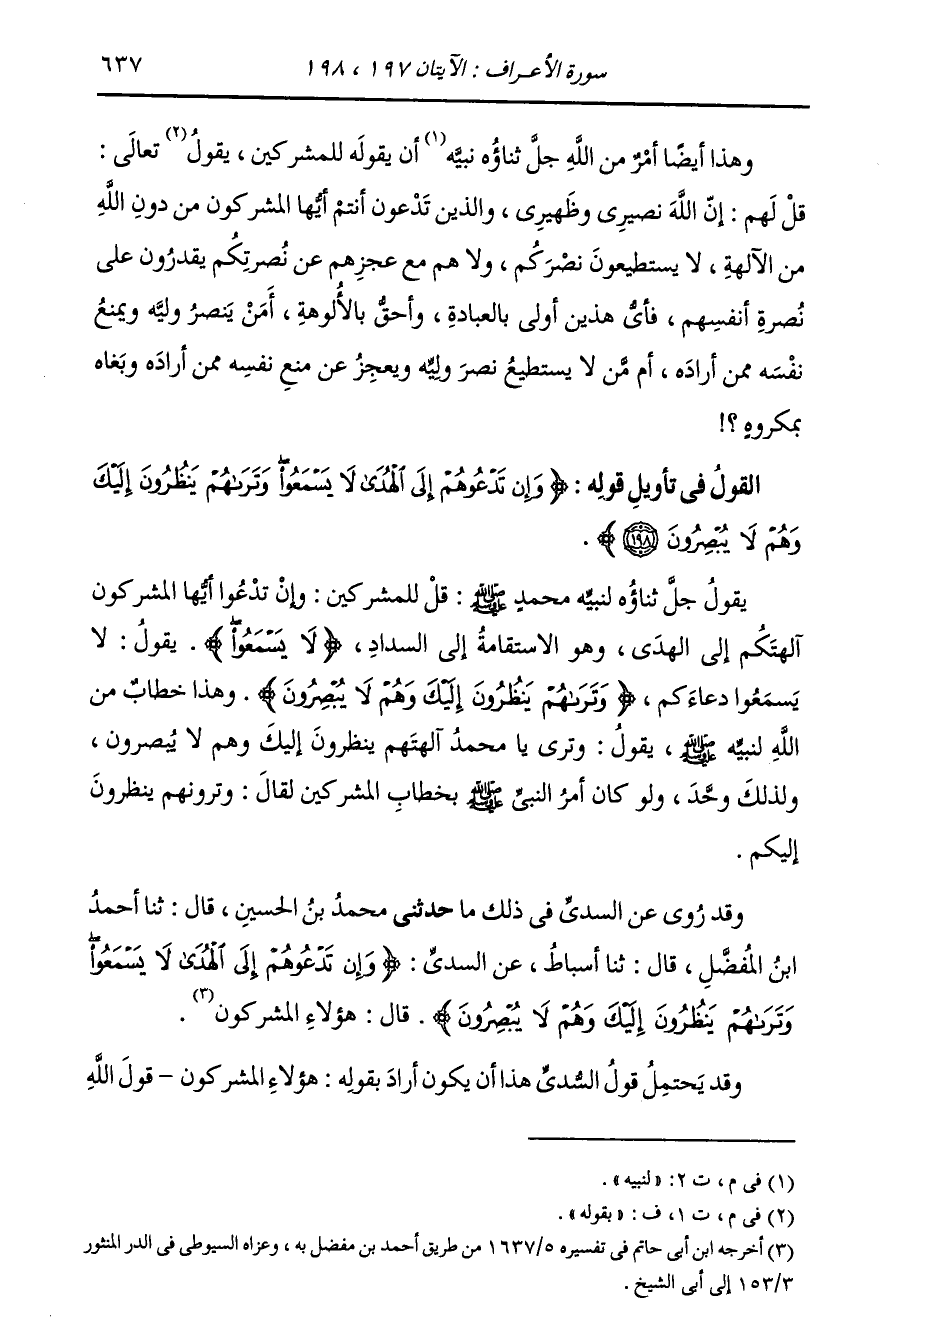 سورة الأعراف : الآيتان ١٩٧ ، ١٩٨ ٦٣٧
وهذا أيضًا أمْرٌ من اللَّهِ جلَّ ثناؤُه نبيَّه(١) أن يقولَه للمشركين ، يقولُ(٢) تعالَى :
قلْ لَهم : إنّ اللَّهَ نصيرِى وظَهيرِى ، والذين تَدْعون أنتمْ أيُّها المشركون من دونِ اللَّهِ
من الآلهةِ ، لا يستطيعونَ نصْرَكُم ، ولا هم مع عجزِهم عن نُصرتِكُم يقدرُون على
نُصرةِ أنفسِهم ، فأىُّ هذين أولى بالعبادةِ ، وأحقُّ بالأُلوهةِ ، أَمَنْ يَنصرُ وليَّه ويمنعُ
نفْسَه ممن أرادَه ، أم مَّن لا يستطيعُ نصرَ وليِّه ويعجِزُ عن منعِ نفسِه ممن أرادَه وبَغاه
بمكروهٍ ؟!
القولُ فى تأويلِ قولِه : ﴿ وَإِن تَدْعُوهُمْ إِلَى ٱلْهُدَىٰ لَا يَسْمَعُوا۟ۖ وَتَرَىٰهُمْ يَنظُرُونَ إِلَيْكَ
وَهُمْ لَا يُبْصِرُونَ ١٩٨ ﴾ .
يقولُ جلَّ ثناؤُه لنبيِّه محمدٍ ﷺ : قلْ للمشركين : وإنْ تدْعُوا أيُّها المشركون
آلهتَكُم إلى الهدَى ، وهو الاستقامةُ إلى السدادِ ، ﴿ لَا يَسْمَعُوا۟ۖ ﴾ . يقولُ : لا
يَسمَعُوا دعاءَكم ، ﴿ وَتَرَىٰهُمْ يَنظُرُونَ إِلَيْكَ وَهُمْ لَا يُبْصِرُونَ ﴾ . وهذا خطابٌ من
اللَّهِ لنبيِّه ﷺ ، يقولُ : وترى يا محمدُ آلهتَهم ينظرونَ إليكَ وهم لا يُبصرون ،
ولذلكَ وحَّدَ ، ولو كان أمرُ النبىِّ ﷺ بخطابِ المشركين لقالَ : وترونهم ينظرونَ
إليكم .
وقد رُوى عن السدىِّ فى ذلك ما حدثنى محمدُ بنُ الحسينِ ، قال : ثنا أحمدُ
ابنُ المُفضَّلِ ، قال : ثنا أسباطُ ، عن السدىِّ : ﴿ وَإِن تَدْعُوهُمْ إِلَى ٱلْهُدَىٰ لَا يَسْمَعُوا۟ۖ
وَتَرَىٰهُمْ يَنظُرُونَ إِلَيْكَ وَهُمْ لَا يُبْصِرُونَ ﴾ . قال : هؤلاءِ المشركون(٣) .
وقد يَحتمِلُ قولُ السُّدىِّ هذا أن يكون أرادَ بقولِه : هؤلاءِ المشركون – قولَ اللَّهِ
(١) فى م ، ت ٢ : «لنبيه» .
(٢) فى م ، ت ١ ، ف : «بقوله» .
(٣) أخرجه ابن أبى حاتم فى تفسيره ١٦٣٧/٥ من طريق أحمد بن مفضل به ، وعزاه السيوطى فى الدر المنثور
١٥٣/٣ إلى أبى الشيخ .